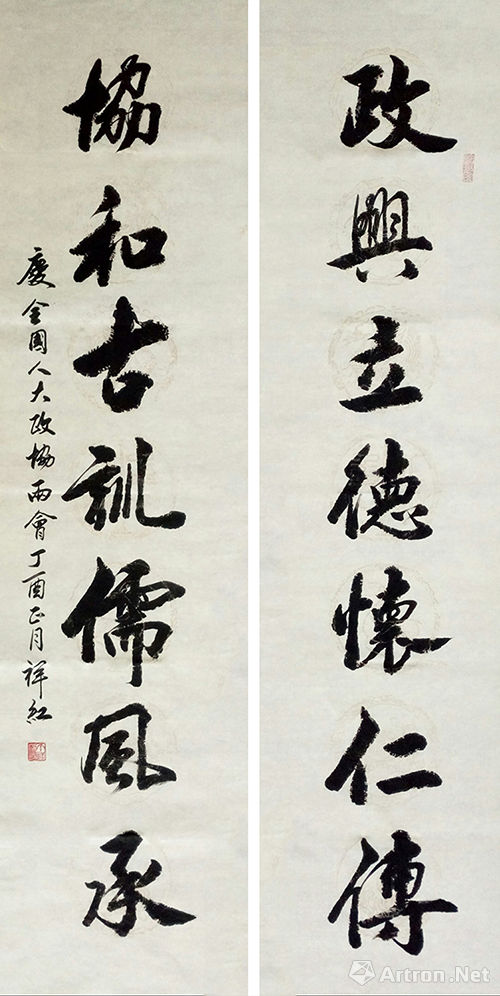 政興立德懷仁傳
協和古訓儒風承
慶全國人大政協兩會丁酉正月祥紅
Artron.Net